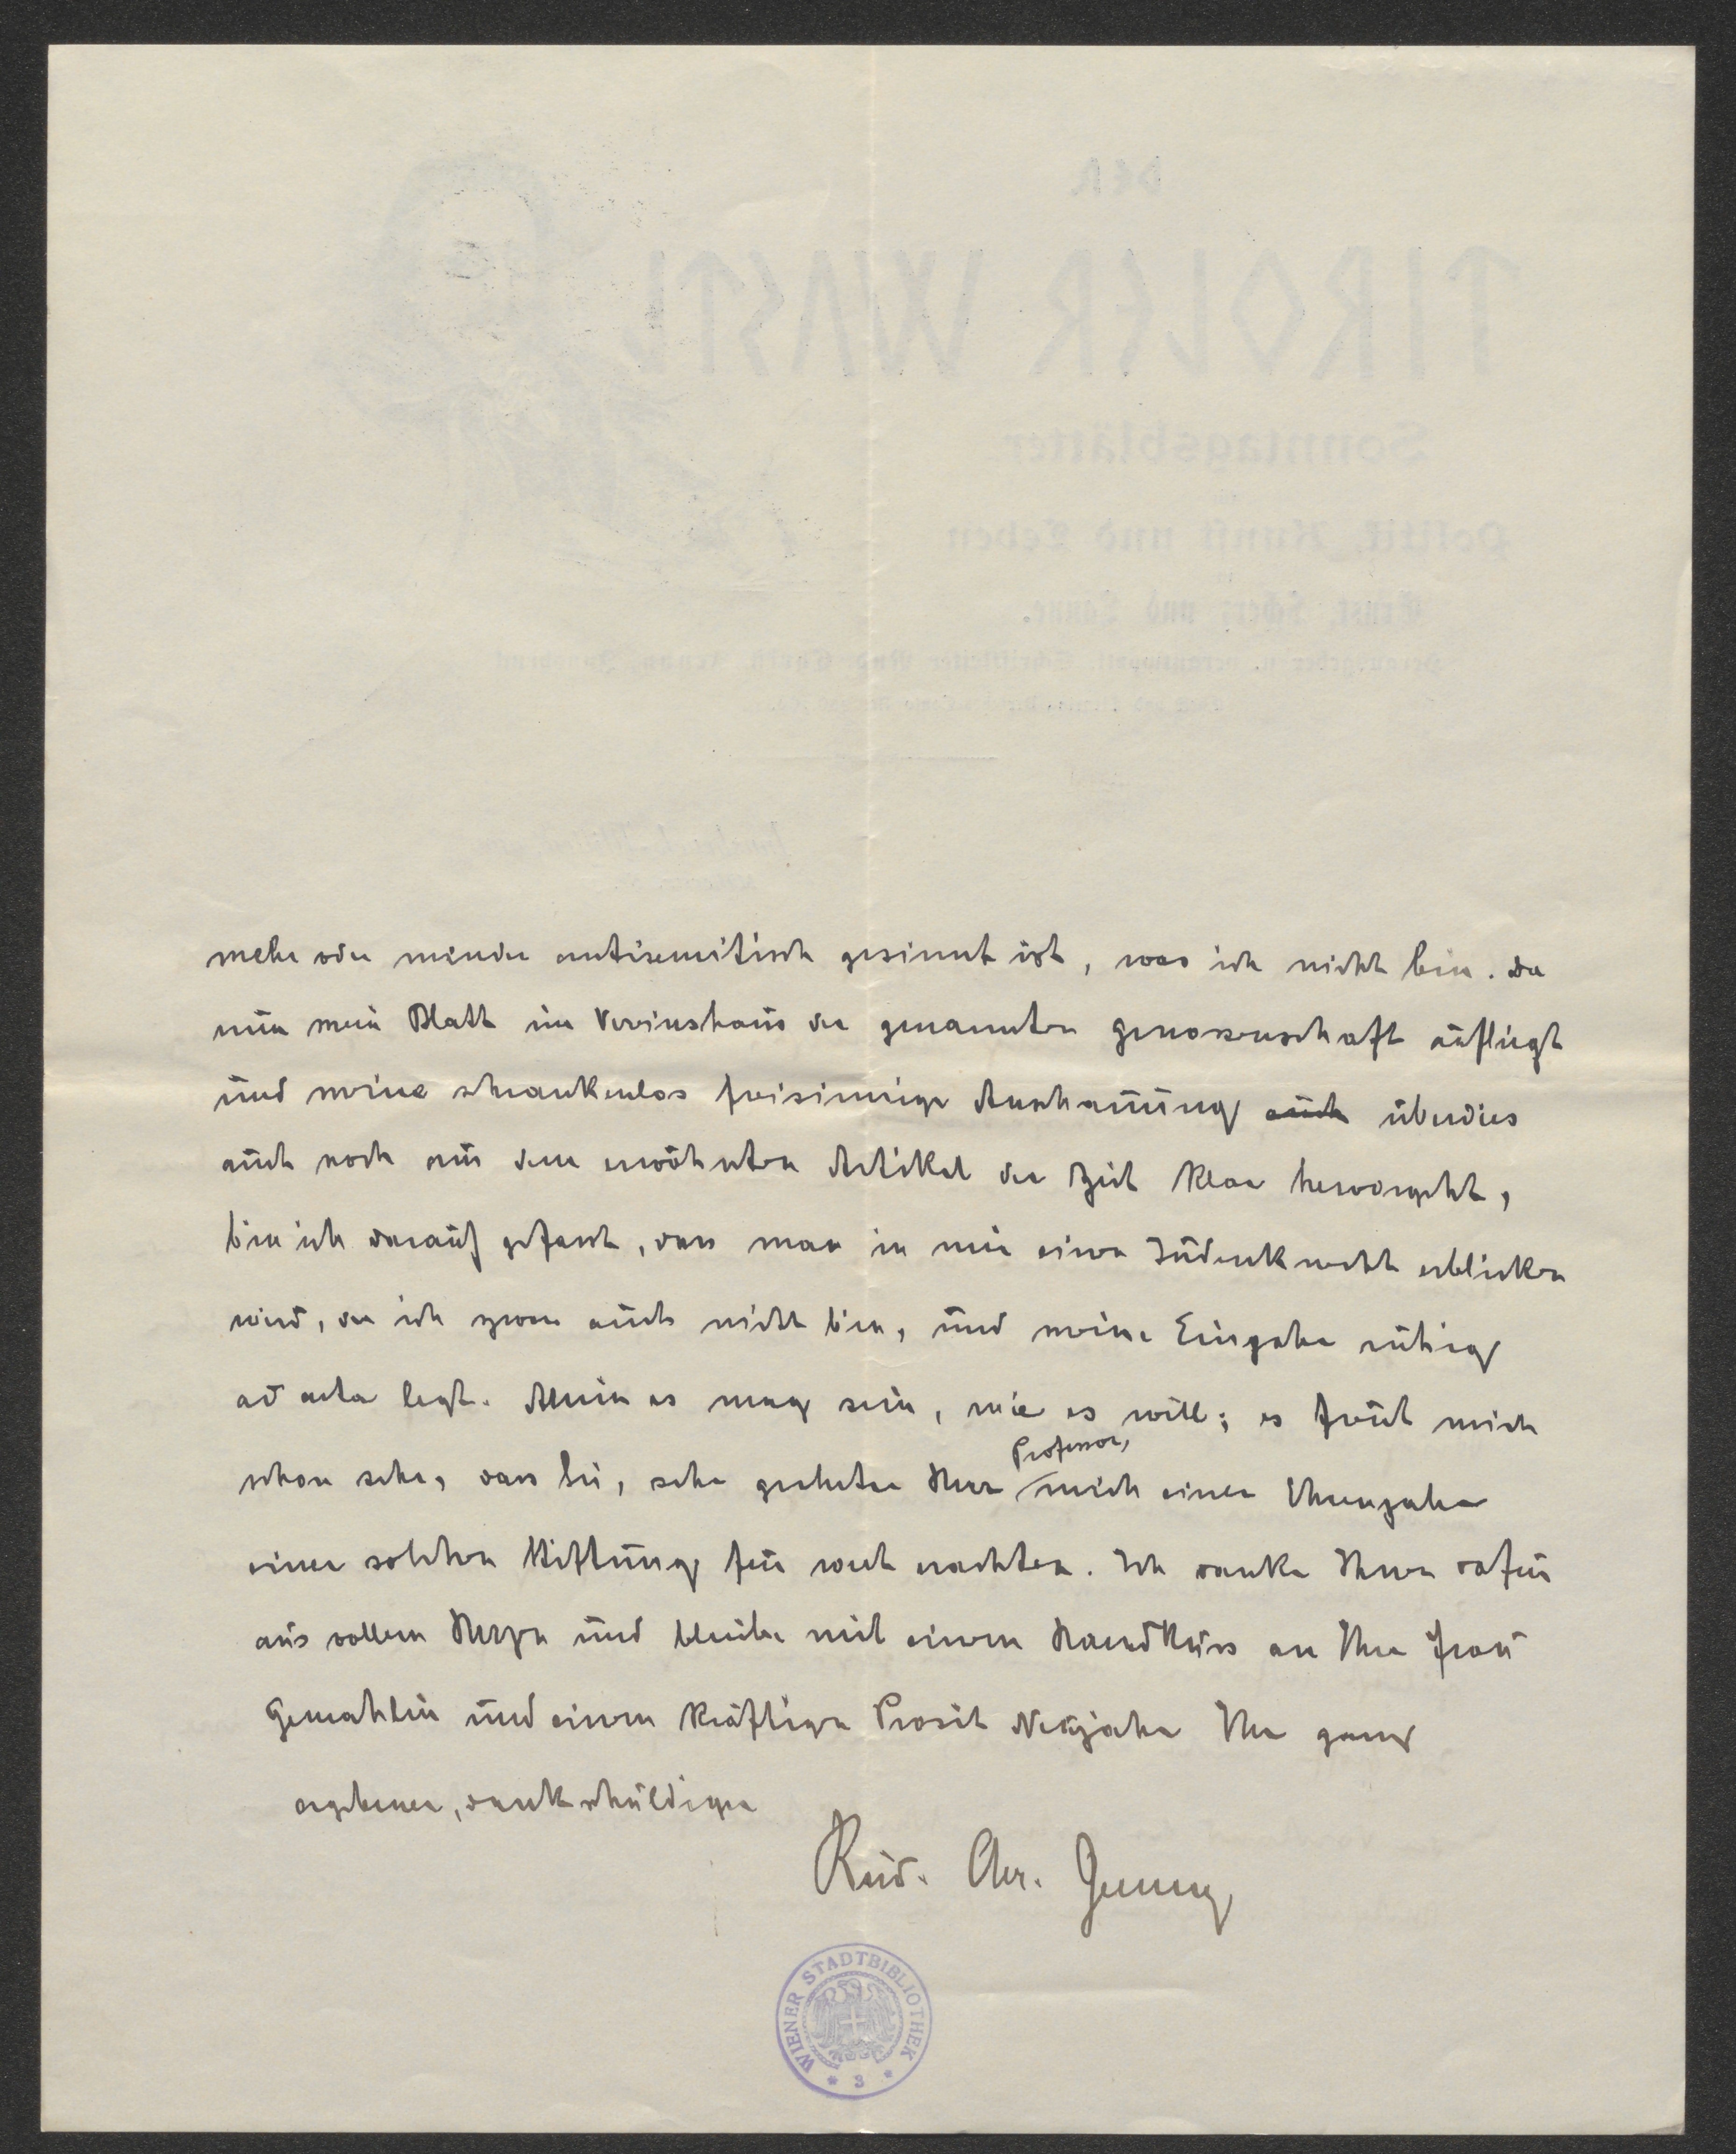 mehr oder minder antisemitisch gesinnt ist, was ich nicht bin. Da
nun mein Blatt im Vereinshaus der genannten Genossenschaft aufliegt
und meine schrankenlos freisinnige Anschauung auch überdies
auch noch aus dem erwähnten Artikel der Zeit klar hervorgeht,
bin ich darauf gefasst, dass man in mir einen Judenknecht erblicken
wird, der ich zwar auch nicht bin, und meine Eingabe ruhig
ad acta legt. Allein es mag sein, wie es will; es freut mich
schon sehr, dass Sie, sehr geehrter Herr Professor, mich einer Ehrengabe
einer solchen Stiftung für wert erachten. Ich danke Ihnen dafür
aus vollem Herzen und bleibe mit einem Handkuss an Ihre Frau
Gemahlin und einem kräftigen Prosit Neujahr Ihr ganz
ergebener, dankschuldiger
Rud. Chr. Jenny
WIENER STADTBIBLIOTHEK
* 3 *
DER
TIROLER WASTL
Sonntagsblätter
Politik, Kunst und Leben
Ernst, Scherz und Laune.